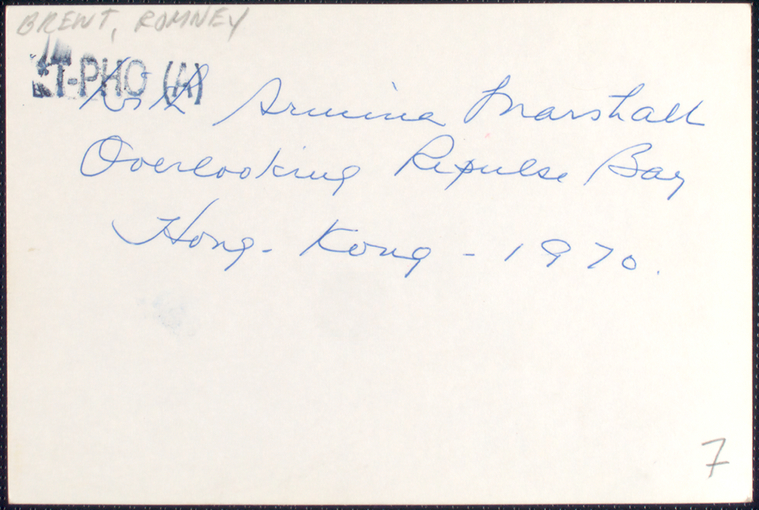 BRENT, ROMNEY
T-PHO (A)
With Armina Marshall
Overlooking Repulse Bay
Hong-Kong - 1970.
7